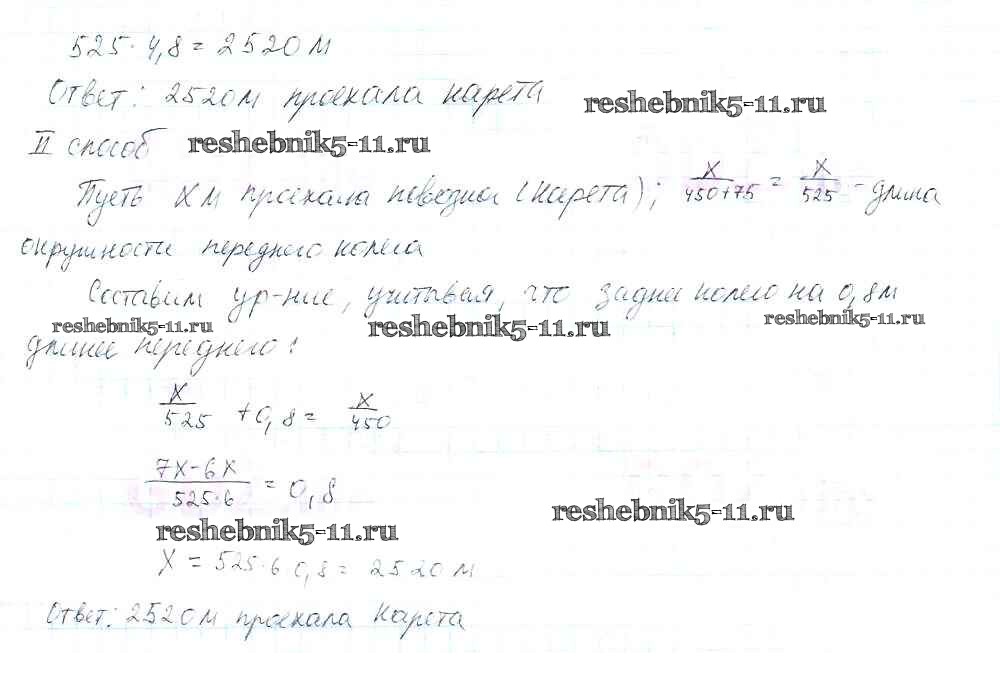 525 · 4,8 = 2520 м
Ответ: 2520 м проехала карета
reshebnik5-11.ru
II способ
reshebnik5-11.ru
Пусть x м проехала повозка (карета); x/450+75 = x/525 - длина
окружности переднего колеса
Составим ур-ние, учитывая, что заднее колесо на 0,8 м
reshebnik5-11.ru reshebnik5-11.ru reshebnik5-11.ru
длинее переднего:
x/525 + 0,8 = x/450
7x-6x/525·6 = 0,8
reshebnik5-11.ru reshebnik5-11.ru
x = 525·6 0,8 = 2520 м
Ответ: 2520 м проехала карета